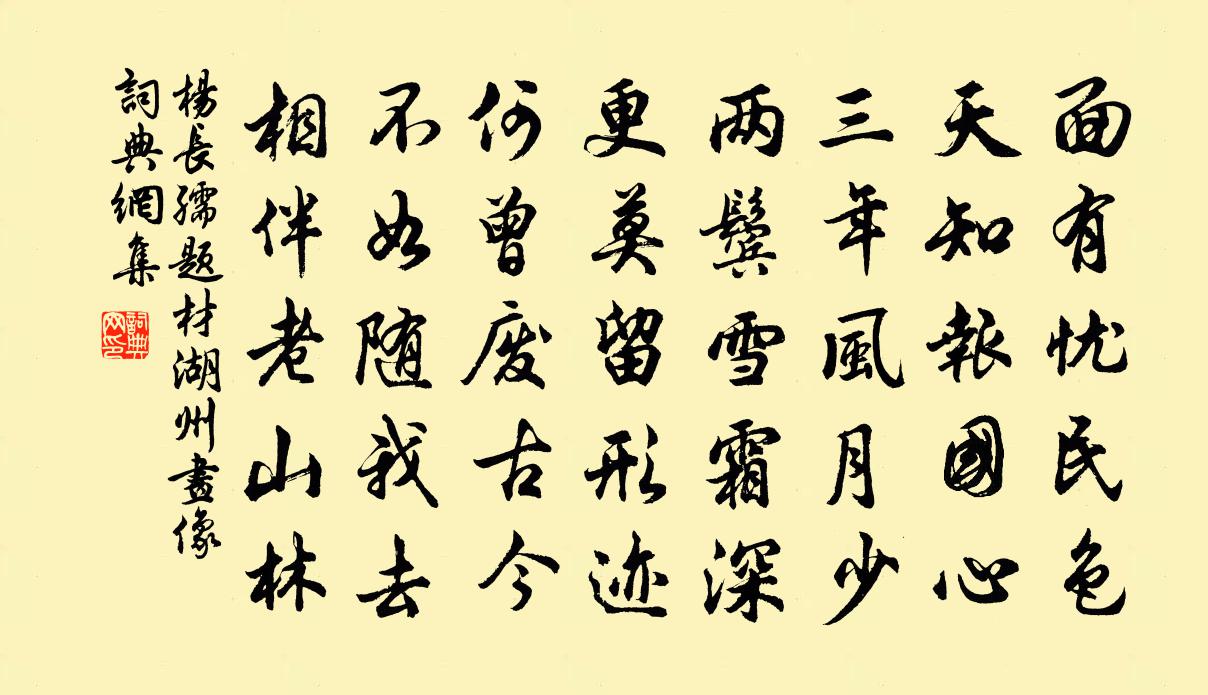 面有忧民色
天知報國心
三年風月少
两鬓雪霜深
更莫留形迹
何曾废古今
不如随我去
相伴老山林
楊長孺题材湖州畫像
詞典網集
詞典网印